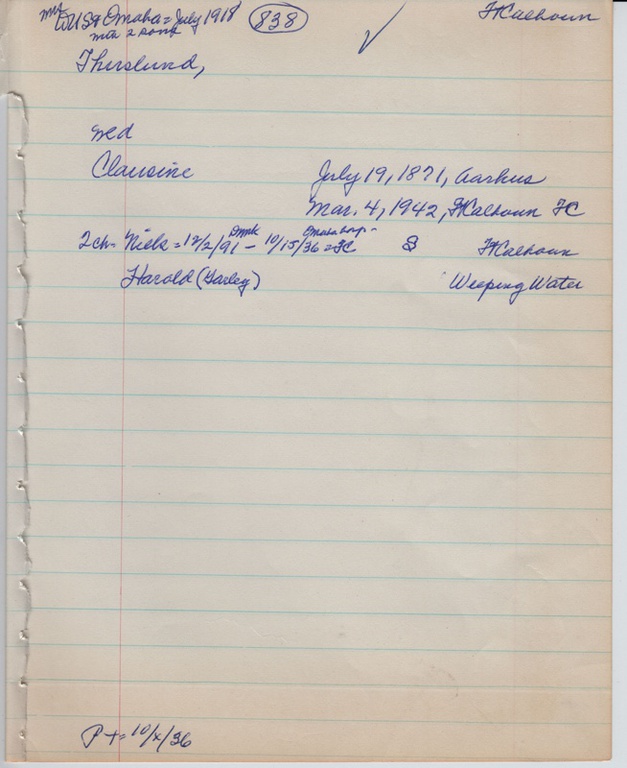 mrs USA Omaha = July 1918 838 FtCalhoun
with 2 sons
Thuslund,
wed
Clausine July 19, 1871, Aarhus
Mar. 4, 1942, FtCalhoun FC
Dmk Omaha hosp-
2 ch- Niels = 12/2/91 - 10/15/36 = FC S FtCalhoun
Harold (Harley) Weeping Water
P += 10/x/36